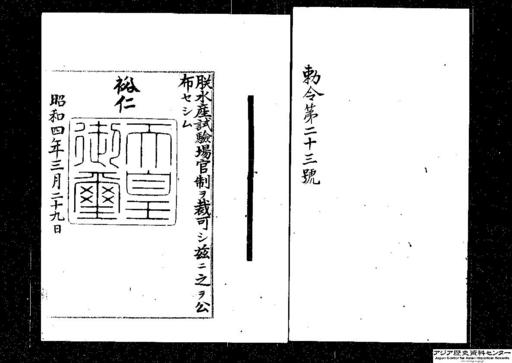 勅令第二十三號
朕水産試驗場官制ヲ裁可シ茲ニ之ヲ公
布セシム
裕仁
天皇御璽
昭和四年三月二十九日
アジア歴史資料センター
Japan Center for Asian Historical Records